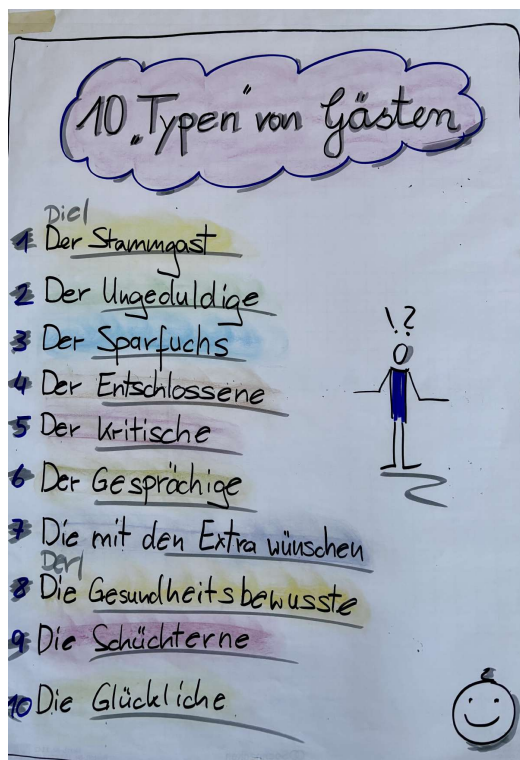 10 „Typen" von Gästen
Die/
1 Der Stammgast
2 Der Ungeduldige
3 Der Sparfuchs
4 Der Entschlossene
5 Der kritische
6 Der Gesprächige
7 Die mit den Extra wünschen
Der/
8 Die Gesundheitsbewusste
9 Die Schüchterne
10 Die Glückliche
!?